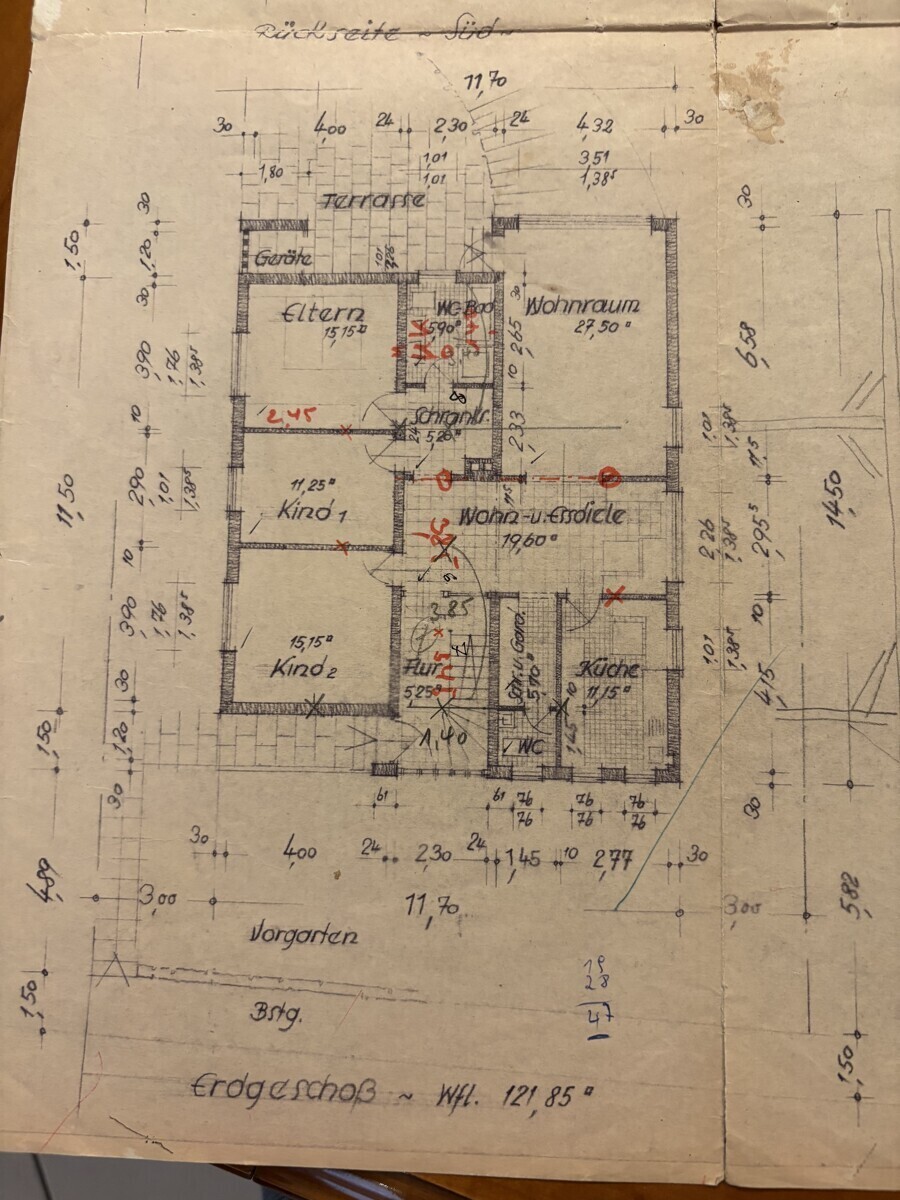 Rückseite ~ Süd ~
11,70
30 4,00 24 2,30 24 4,32 30
1,01 3,51
1,80 1,01 1,38⁵
Terrasse
Geräte
Eltern
15,15 ¤
WC-Bad
5,90 ¤
Wohnraum
27,50 ¤
2,45
Schrankr.
5,20 ¤
11,25 ¤
Kind 1
Wohn- u. Essdiele
19,60 ¤
3,85
15,15 ¤
Kind 2
Flur
5,25 ¤
Küche
11,15 ¤
1,40
WC
1,45
10
30
2,65
10
2,33
24
1,50
30
1,20
30
3,90
1,76
1,38⁵
10
2,90
1,01
1,38⁵
10
3,90
1,76
1,38⁵
30
1,20
30
11,50
1,50
4,80
1,50
30
6,58
1,01
1,38⁵
11,5
2,26
1,38⁵
2,95⁵
10
1,01
1,38⁵
4,15
30
14,50
5,82
1,50
61 61 76 76 76
76 76 76
30 4,00 24 2,30 24 1,45 10 2,77 30
3,00 11,70 3,00
Vorgarten
Bstg.
19
28
47
Erdgeschoß ~ Wfl. 121,85 ¤